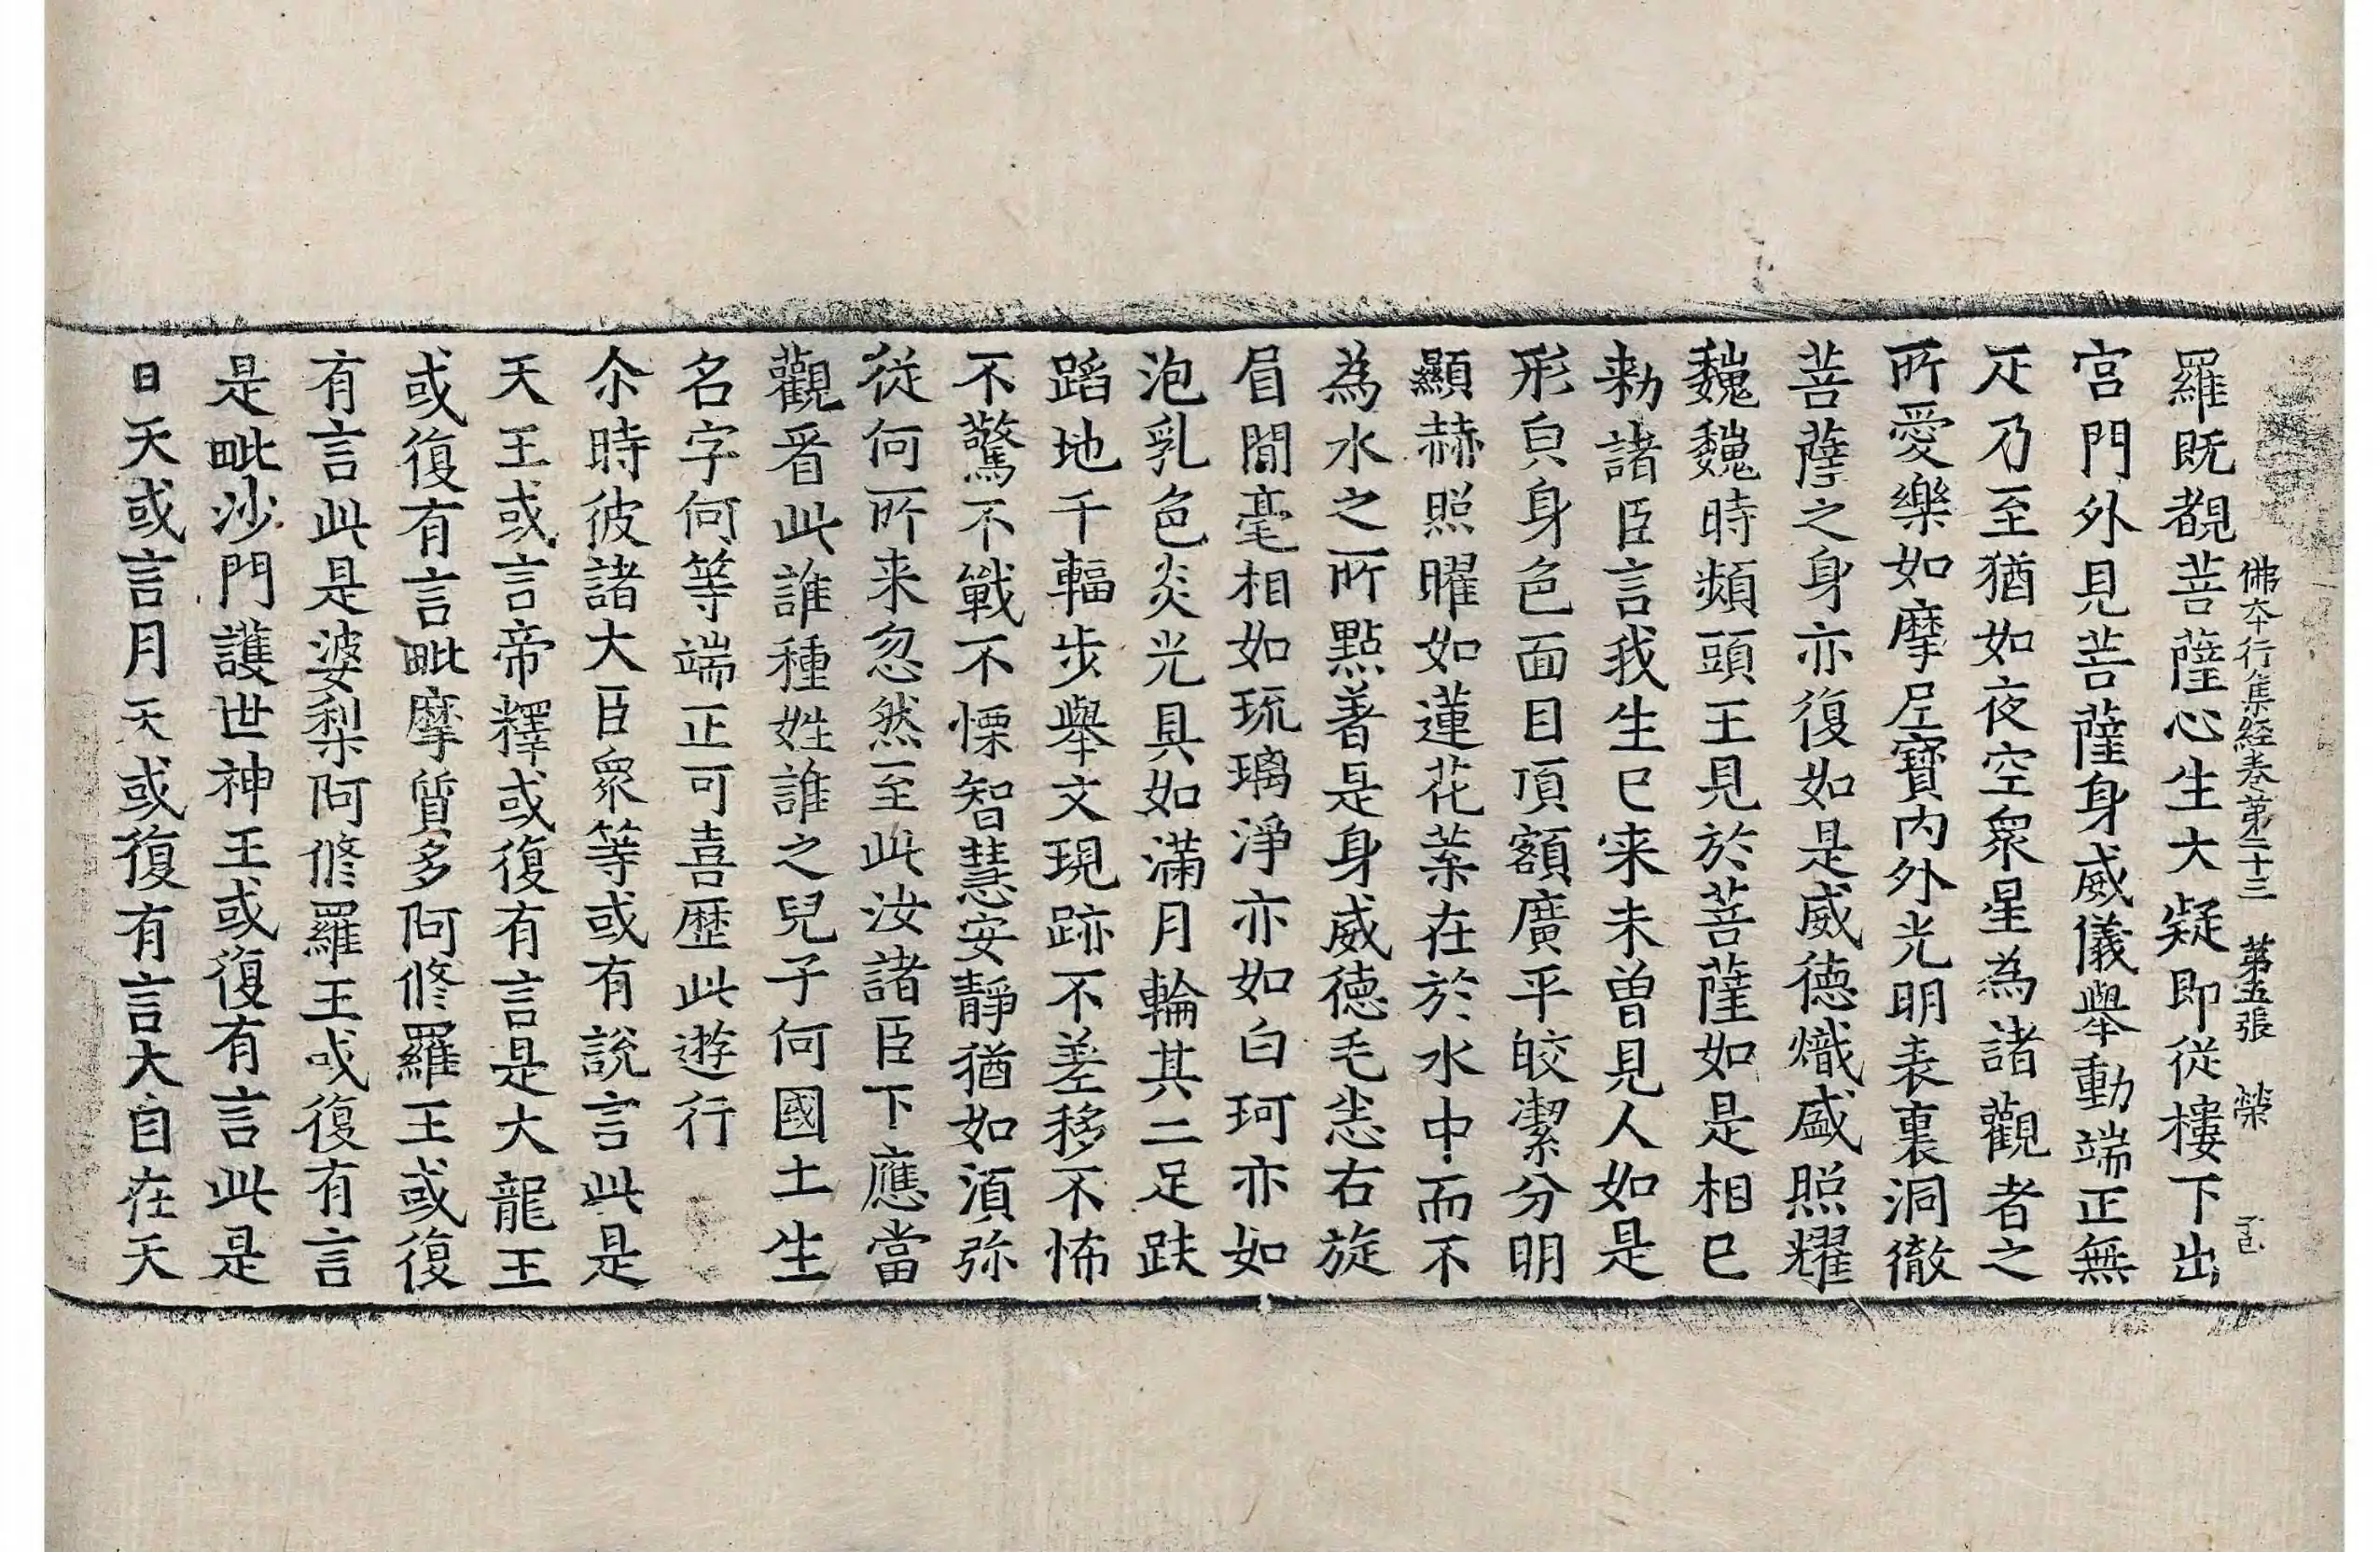 佛本行集經卷第二十三 第五張 榮
羅既覩菩薩心生大疑即從樓下出
宮門外見菩薩身威儀舉動端正無
疋乃至猶如夜空衆星為諸觀者之
所愛樂如摩尼寶內外光明表裏洞徹
菩薩之身亦復如是威德熾盛照耀
巍巍時頻頭王見於菩薩如是相已
勑諸臣言我生已来未曾見人如是
形皃身色面目頂額廣平皎潔分明
顯赫照曜如蓮花葉在於水中而不
為水之所點著是身威德毛恙右旋
眉間毫相如琉璃淨亦如白珂亦如
泡乳色炎光具如滿月輪其二足趺
蹈地千輻步舉文現跡不差移不怖
不驚不戰不慄智慧安靜猶如湏弥
從何所来忽然至此汝諸臣下應當
觀看此誰種姓誰之兒子何國土生
名字何等端正可喜歷此遊行
尒時彼諸大臣衆等或有說言此是
天王或言帝釋或復有言是大龍王
或復有言毗摩質多阿修羅王或復
有言此是婆梨阿修羅王或復有言
是毗沙門護世神王或復有言此是
日天或言月天或復有言大自在天